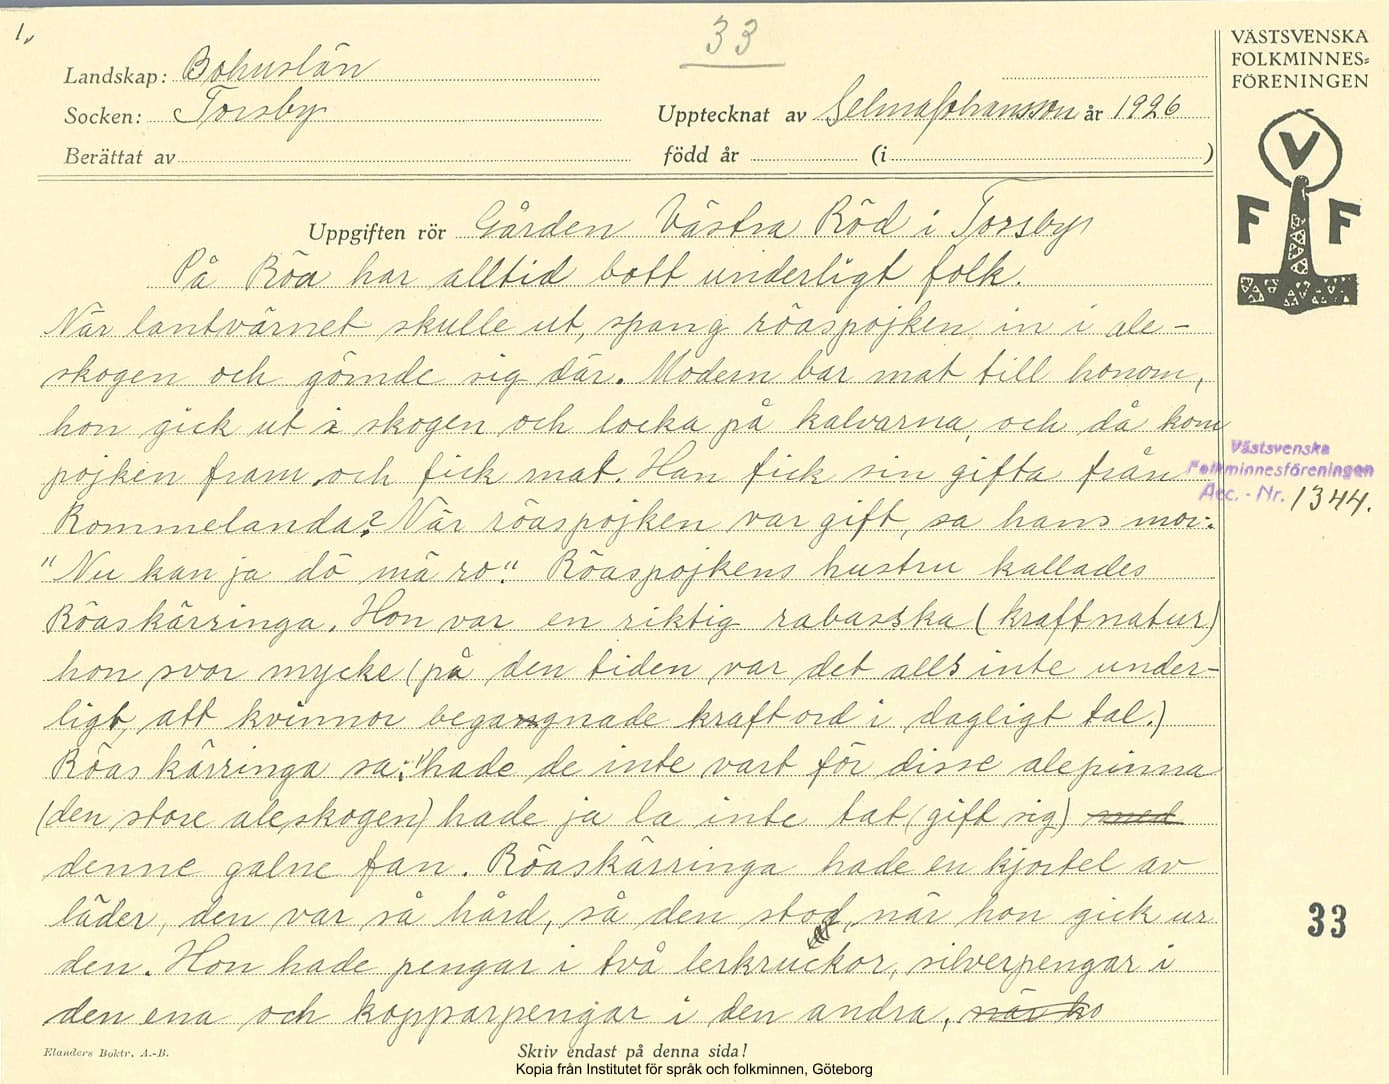 1,
33
VÄSTSVENSKA
FOLKMINNES=
FÖRENINGEN
Landskap: Bohuslän
Socken: Torsby
Upptecknat av Selma Johansson år 1926
Berättat av
född år (i )
V
F F
Uppgiften rör Gården Västra Röd i Torsby
På Röa har alltid bott underligt folk.
När lantvärnet skulle ut, sprang röaspojken in i ale-
skogen och gömde sig där. Modern bar mat till honom,
hon gick ut i skogen och locka på kalvarna, och då kom
pojken fram och fick mat. Han fick sin gifta från
Rommelanda? När röaspojken var gift, sa hans mor:
"Nu kan ja dö mä ro." Röaspojkens hustru kallades
Röaskärringa. Hon var en riktig rabasska (kraftnatur)
hon svor mycke (på den tiden var det alls inte under-
ligt, att kvinnor begagnade kraftord i dagligt tal.)
Röaskärringa sa: "hade de inte vart för disse alepinna
(den store aleskogen) hade ja la inte tat (gift sig) med
denne galne fan. Röaskärringa hade en kjortel av
läder, den var så hård, så den stod, när hon gick ur
den. Hon hade pengar i två lerkruckor, silverpengar i
den ena och kopparpengar i den andra, när ho
Västsvenska
Folkminnesföreningen
Acc. - Nr. 1344.
33
Elanders Boktr. A.-B.
Skriv endast på denna sida!
Kopia från Institutet för språk och folkminnen, Göteborg